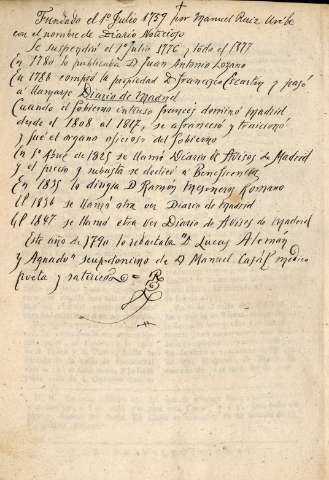 Fundado el 1º Julio 1757 por Manuel Ruiz Uribe
con el nombre de Diario Noticioso
Se suspendió el 1º Julio 1776 y todo el 1777
En 1780 lo publicaba D Juan Antonio Lozano
En 1788 compró la propiedad D Francisco y pasó
a llamarse Diario de Madrid
Cuando el Gobierno intruso francés dominó Madrid
desde el 1808 al 1817, se afrancesó y traicionó
y fué el organo oficioso del Gobierno
En 1º Abril de 1825 se llamó Diario de Avisos de Madrid
y el precio y subasta se dedicó a Beneficencia
En 1835 lo dirigia D Ramón Mesonero Romano
El 1836 se llamó otra vez Diario de Madrid
El 1847 se llamó otra vez Diario de Avisos de Madrid
Este año de 1790 lo redactaba "D Lucas Alemán
y Aguado" seupdonimo de D Manuel Casal médico
poeta y